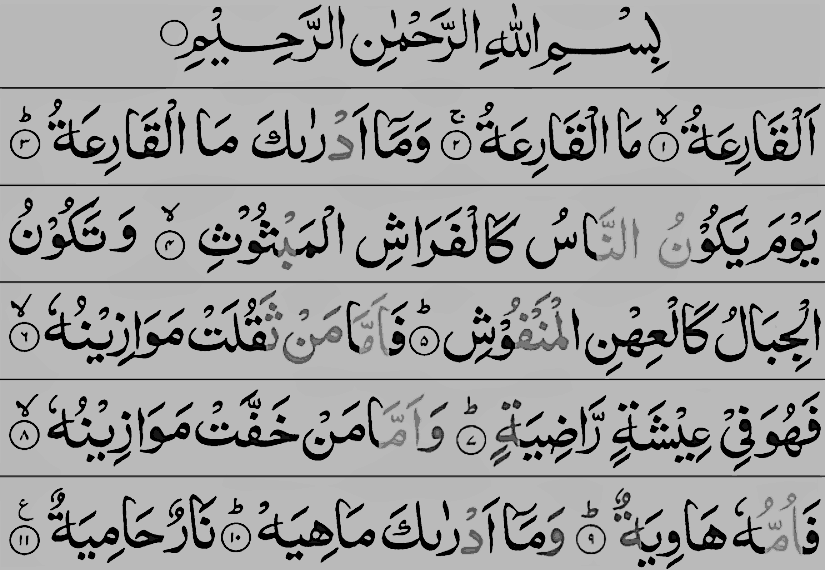 بِسْمِ اللّٰهِ الرَّحْمٰنِ الرَّحِيْمِ ○
اَلْقَارِعَةُ ۙ﴿۱﴾ مَا الْقَارِعَةُ ۚ﴿۲﴾ وَمَاۤ اَدْرٰىكَ مَا الْقَارِعَةُ ؕ﴿۳﴾
يَوْمَ يَكُوْنُ النَّاسُ كَالْفَرَاشِ الْمَبْثُوْثِ ۙ﴿۴﴾ وَتَكُوْنُ
الْجِبَالُ كَالْعِهْنِ الْمَنْفُوْشِ ؕ﴿۵﴾ فَاَمَّا مَنْ ثَقُلَتْ مَوَازِيْنُهٗ ۙ﴿۶﴾
فَهُوَ فِيْ عِيْشَةٍ رَّاضِيَةٍ ؕ﴿۷﴾ وَاَمَّا مَنْ خَفَّتْ مَوَازِيْنُهٗ ۙ﴿۸﴾
فَاُمُّهٗ هَاوِيَةٌ ؕ﴿۹﴾ وَمَاۤ اَدْرٰىكَ مَاهِيَهْ ؕ﴿۱۰﴾ نَارٌ حَامِيَةٌ ﴿۱۱﴾ ع